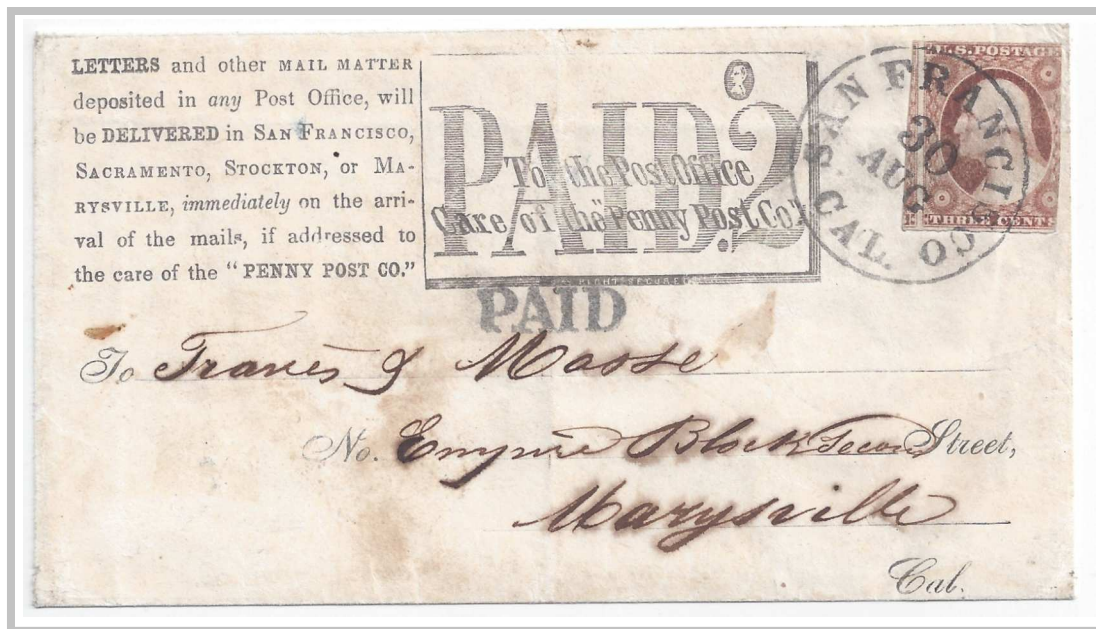 LETTERS and other MAIL MATTER
deposited in any Post Office, will
be DELIVERED in SAN FRANCISCO,
SACRAMENTO, STOCKTON, or MA-
RYSVILLE, immediately on the arri-
val of the mails, if addressed to
the care of the "PENNY POST CO."
PAID.2
To the Post Office
Care of the "Penny Post Co."
PAID
SAN FRANCISCO
30
AUG
CAL.
U.S. POSTAGE
THREE CENTS
To Traves & Masse
No. Empire Block Secon Street,
Marysville
Cal.